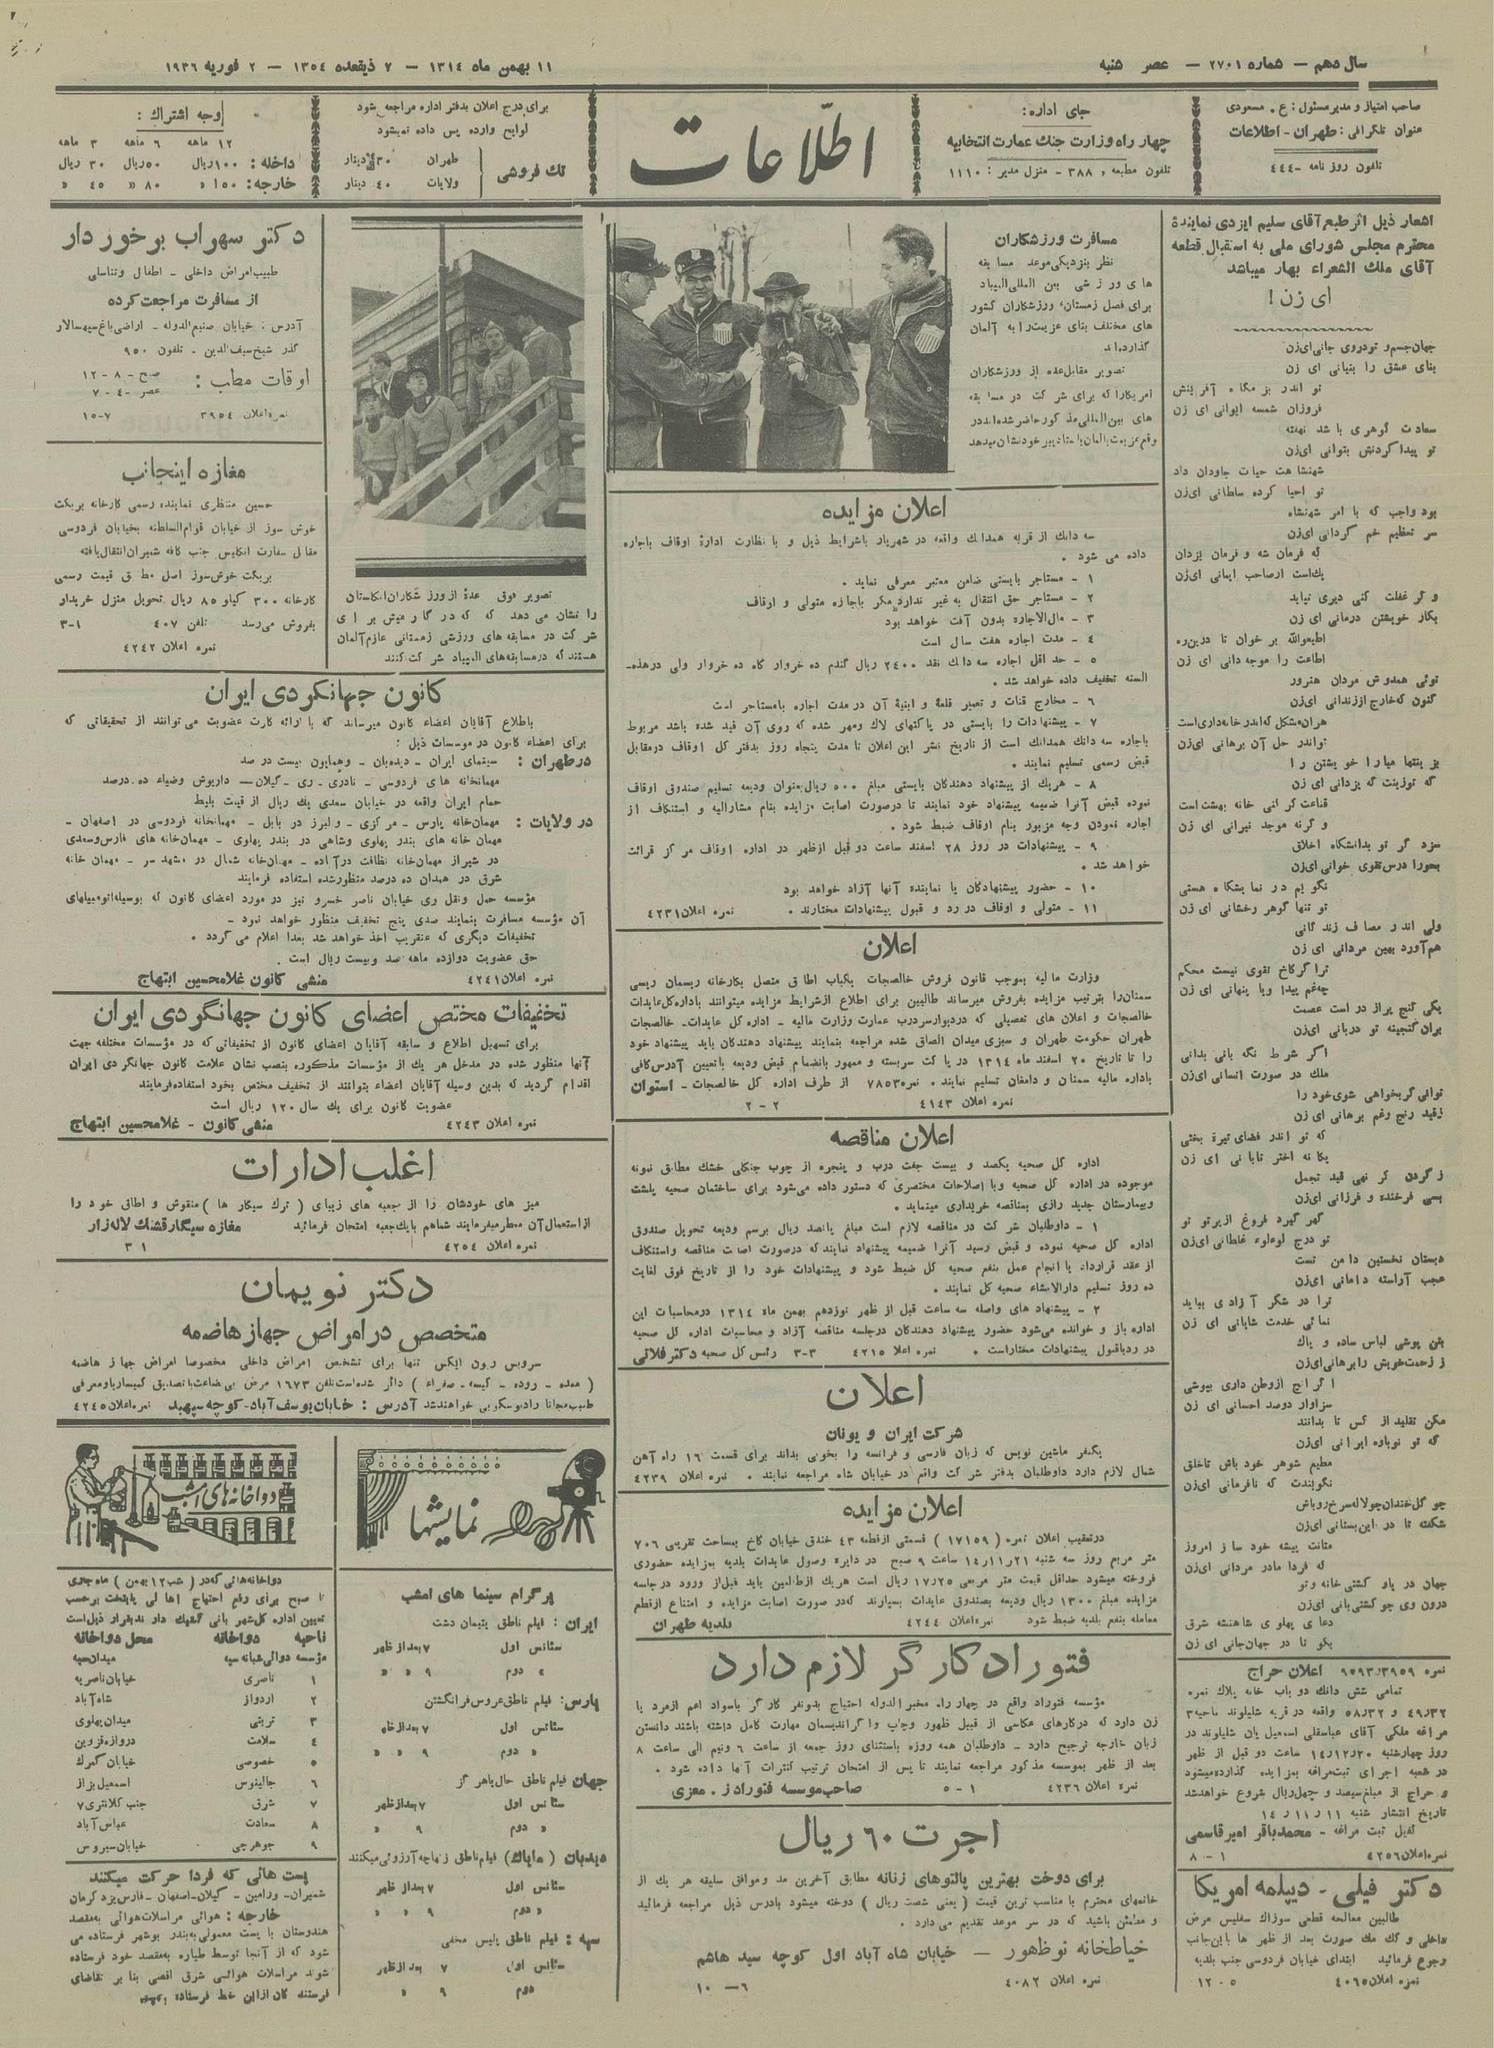 سال دهم — شماره ۲۷۰۱ — عصر شنبه
۱۱ بهمن ماه ۱۳۱۴ — ۷ ذیقعده ۱۳۵۴ — ۲ فوریه ۱۹۳۶
صاحب امتیاز و مدیر مسئول : ع . مسعودی
عنوان تلگرافی : طهران - اطلاعات
تلفون روز نامه - ۴۴۴
جای اداره :
چهار راه وزارت جنگ عمارت انتخابیه
تلفون مطبعه ، ۳۸۸ - منزل مدیر : ۱۱۱۰
اطلاعات
برای درج اعلان بدفتر اداره مراجعه شود
لوایح وارده پس داده نمیشود
تک فروشی
طهران ۳۰ دینار
ولایات ۴۰ دینار
وجه اشتراك :
۱۲ ماهه ۶ ماهه ۳ ماهه
داخله : ۱۰۰ ریال ۵۰ ریال ۳۰ ریال
خارجه : ۱۵۰ » ۸۰ » ۴۵ »
اشعار ذیل اثر طبع آقای سلیم ایزدی نمایندهٔ
محترم مجلس شورای ملی به استقبال قطعه
آقای ملك الشعراء بهار میباشد
ای زن !
جهان جسم و تو در وی جانی ای زن
بنای عشق را بنیانی ای زن
تو اندر بزمگاه آفرینش
فروزان شمسه ایوانی ای زن
سعادت گوهری باشد نهفته
تو پیدا کردنش بتوانی ای زن
شهنشاهت حیات جاودان داد
تو احیا کرده سلطانی ای زن
بود واجب که با امر شهنشاه
سر تعظیم خم گردانی ای زن
که فرمان شه و فرمان یزدان
یك است ار صاحب ایمانی ای زن
و گر غفلت کنی دیری نپاید
بکار خویشتن درمانی ای زن
اطیعوالله بر خوان تا در این ره
اطاعت را موجه دانی ای زن
توئی همدوش مردان هنرور
کنون که خارج از زندانی ای زن
هر ان مشکل که اندر خانه داری است
تواند حل آن برهانی ای زن
بزینتها میارا خویشتن را
که تو زینت که یزدانی ای زن
قناعت گر کنی خانه بهشت است
و گرنه موجد نیرانی ای زن
سزد گر تو بدانشگاه اخلاق
بحورا درس تقوی خوانی ای زن
نگویم در نمایشگاه هستی
تو تنها گوهر رخشانی ای زن
ولی اندر مصاف زندگانی
هم آورد بهین مردانی ای زن
ترا گر کاخ تقوی نیست محکم
چه غم پیدا و یا پنهانی ای زن
یکی گنج پر از در است عصمت
بر ان گنجینه تو دربانی ای زن
اگر شرط نگه بانی بدانی
ملك در صورت انسانی ای زن
توانی گر بخواهی شوی خود را
ز قید رنج و غم برهانی ای زن
که تو اندر فضای تیرهٔ بختی
یگانه اختر تابانی ای زن
ز گردن گر نهی قید تجمل
بسی فرخنده و فرزانی ای زن
گهر گیرد فروغ از پرتو تو
تو درج لوءلوء غلطانی ای زن
دبستان نخستین دامن تست
عجب آراسته دامانی ای زن
ترا در شکر آزادی بباید
نمائی خدمت شایانی ای زن
بتن پوشی لباس ساده و پاك
ز زحمت خویش را برهانی ای زن
اگر انچ از وطن داری بپوشی
سزاوار دوصد احسانی ای زن
مکن تقلید از کس تا بدانند
که تو نوباوه ایرانی ای زن
مطیع شوهر خود باش تا خلق
نگویندت که نافرمانی ای زن
چو گل خندان چو لاله سرخ رو باش
شکفته تا در این بستانی ای زن
متانت پیشه خود ساز امروز
که فردا مادر مردانی ای زن
جهان دریا و کشتی خانه و تو
درون وی چو کشتی بانی ای زن
دعای پهلوی شاهنشه شرق
بگو تا در جهان جانی ای زن
نمره ۹۵۹۳/۳۹۵۹ اعلان حراج
تمامی شش دانك دو باب خانه پلاك نمره
۴۹/۳۲ و ۵۸/۳۲ واقعه در قریه شلیلوند ناحیه ۳
مراغه ملکی آقای عباسقلی اسمعیل پان شلیلوند در
روز چهارشنبه ۱۴/۱۲/۲۰ ساعت دو قبل از ظهر
در شعبه اجرای ثبت مراغه بمزایده گذارده میشود
و حراج از مبلغ سیصد و چهل ریال شروع خواهد شد
تاریخ انتشار شنبه ۱۱ ر ۱۱ ر ۱۴
کفیل ثبت مراغه - محمدباقر امیرقاسمی
نمره اعلان ۴۲۵۶ ۱ - ۸
دکتر فیلی - دیپلمه امریکا
طالبین معالجه قطعی سوزاك سفلیس مرض
داخلی و کك مك صورت بعد از ظهر ها باین جانب
رجوع فرمائید ابتدای خیابان فردوسی جنب بلدیه
نمره اعلان ۴۰۶۵ ۵ - ۱۲
مسافرت ورزشکاران
نظر بنزدیکی موعد مسابقه
های ورزشی بین المللی المپیاد
برای فصل زمستان، ورزشکاران کشور
های مختلف بنای عزیمت را به آلمان
گذارده اند
تصویر مقابل عده از ورزشکاران
امریکا را که برای شرکت در مسابقه
های بین المللی مذکور حاضر شده اند در
وقع عزیمت بالمان با ستاد پیر خودنشان میدهد
اعلان مزایده
سه دانك از قریه همدانك واقعه در شهریار باشرایط ذیل و با نظارت ادارهٔ اوقاف باجاره
داده می شود .
۱ - مستاجر بایستی ضامن معتبر معرفی نماید .
۲ - مستاجر حق انتقال به غیر ندارد مگر باجازه متولی و اوقاف
۳ - مال الاجاره بدون آفت خواهد بود
۴ - مدت اجاره هفت سال است
۵ - حد اقل اجاره سه دانك نقد ۲۴۰۰ ریال گندم ده خروار کاه ده خروار ولی در هذه-
السنه تخفیف داده خواهد شد .
۶ - مخارج قنات و تعمیر قلعه و ابنیهٔ آن در مدت اجاره با مستاجر است
۷ - پیشنهادات را بایستی در پاکتهای لاك و مهر شده که روی آن قید شده باشد مربوط
باجاره سه دانك همدانك است از تاریخ نشر این اعلان تا مدت پنجاه روز بدفتر کل اوقاف در مقابل
قبض رسمی تسلیم نمایند .
۸ - هریك از پیشنهاد دهندگان بایستی مبلغ ۵۰۰ ریال بعنوان ودیعه تسلیم صندوق اوقاف
نموده قبض آنرا ضمیمه پیشنهاد خود نمایند تا درصورت اصابت مزایده بنام مشارالیه و استنکاف از
اجاره نمودن وجه مزبور بنام اوقاف ضبط شود .
۹ - پیشنهادات در روز ۲۸ اسفند ساعت دو قبل از ظهر در اداره اوقاف مرکز قرائت
خواهد شد .
۱۰ - حضور پیشنهادکان یا نماینده آنها آزاد خواهد بود
۱۱ - متولی و اوقاف در رد و قبول پیشنهادات مختارند . نمره اعلان ۴۲۳۱
اعلان
وزارت مالیه بموجب قانون فروش خالصجات یکباب اطاق متصل بکارخانه ریسمان ریسی
سمنان را بترتیب مزایده بفروش میرساند طالبین برای اطلاع از شرایط مزایده میتوانند باداره کل عایدات
خالصجات و اعلان های تفصیلی که در دیوار سردرب عمارت وزارت مالیه - اداره کل عایدات - خالصجات
طهران حکومت طهران و سبزی میدان الصاق شده مراجعه بنمایند پیشنهاد دهندگان باید پیشنهاد خود
را تا تاریخ ۲۰ اسفند ماه ۱۳۱۴ در پاکت سربسته و ممهور بانضمام قبض ودیعه باتعیین آدرس کافی
باداره مالیه سمنان و دامغان تسلیم نمایند . نمره ۷۸۵۳ از طرف اداره کل خالصجات - استوان
نمره اعلان ۴۱۴۳ ۲ - ۲
اعلان مناقصه
اداره کل صحیه یکصد و بیست جفت درب و پنجره از چوب جنگلی خشك مطابق نمونه
موجوده در اداره کل صحیه و با اصلاحات مختصری که دستور داده می شود برای ساختمان صحیه پلشت
وبیمارستان جدید رازی بمناقصه خریداری مینماید .
۱ - داوطلبان شرکت در مناقصه لازم است مبلغ پانصد ریال برسم ودیعه تحویل صندوق
اداره کل صحیه نموده و قبض رسید آنرا ضمیمه پیشنهاد نمایند که درصورت اصابت مناقصه واستنکاف
از عقد قرارداد یا انجام عمل بنفع صحیه کل ضبط شود و پیشنهادات خود را از تاریخ فوق لغایت
ده روز تسلیم دارالانشاء صحیه کل نمایند .
۲ - پیشنهاد های واصله سه ساعت قبل از ظهر نوزدهم بهمن ماه ۱۳۱۴ درمحاسبات این
اداره باز و خوانده می شود حضور پیشنهاد دهندگان درجلسه مناقصه آزاد و محاسبات اداره کل صحیه
در رد یا قبول پیشنهادات مختار است . نمره اعلا ۴۲۱۵ ۳-۳ رئیس کل صحیه دکتر فلاتی
اعلان
شرکت ایران و یونان
یکنفر ماشین نویس که زبان فارسی و فرانسه را بخوبی بداند برای قسمت ۱۶ راه آهن
شمال لازم دارد داوطلبان بدفتر شرکت واقع در خیابان شاه مراجعه نمایند . نمره اعلان ۴۲۳۹
اعلان مزایده
در تعقیب اعلان نمره ( ۱۷۱۵۹ ) قسمتی از قطعه ۴۳ خندق خیابان کاخ بمساحت تقریبی ۷۰۶
متر مربع روز سه شنبه ۱۴/۱۱/۲۱ ساعت ۹ صبح در دایره وصول عایدات بلدیه بمزایده حضوری
فروخته میشود حداقل قیمت متر مربعی ۱۷/۲۵ ریال است هریك از طالبین باید قبل از ورود در جلسه
مزایده مبلغ ۱۳۰۰ ریال ودیعه بصندوق عایدات بسپارند که درصورت اصابت مزایده و امتناع از قطع
معامله بنفع بلدیه ضبط شود نمره اعلان ۴۲۴۴ بلدیه طهران
فتوراد کارگر لازم دارد
مؤسسه فتوراد واقع در چهار راه مخبرالدوله احتیاج بدو نفر کارگر باسواد اعم از مرد یا
زن دارد که در کارهای عکاسی از قبیل ظهور و چاپ و اگراندیسمان مهارت کامل داشته باشند دانستن
زبان خارجه ترجیح دارد - داوطلبان همه روزه باستثنای روز جمعه از ساعت ۶ ونیم الی ساعت ۸
بعد از ظهر بموسسه مذکور مراجعه نمایند تا پس از امتحان ترتیب کنترات آنها داده شود .
نمره اعلان ۴۲۳۶ ۱ - ۵ صاحب موسسه فتوراد ز . معزی
اجرت ۶۰ ریال
برای دوخت بهترین پالتوهای زنانه مطابق آخرین مد و موافق سلیقه هر یك از
خانمهای محترم با مناسب ترین قیمت ( یعنی شصت ریال ) دوخته میشود بادرس ذیل مراجعه فرمائید
و مطمئن باشید که در سر موعد تقدیم می دارد .
خیاطخانه نوظهور — خیابان شاه آباد اول کوچه سید هاشم
نمره اعلان ۴۰۸۲ ۶ - ۱۰
تصویر فوق عدهٔ از ورزشکاران انگلستان
را نشان می دهد که که در گارمیش برای
شرکت در مسابقه های ورزشی زمستانی عازم آلمان
هستند که در مسابقه های المپیاد شرکت کنند
دکتر سهراب برخوردار
طبیب امراض داخلی - اطفال و تناسلی
از مسافرت مراجعت کرده
آدرس : خیابان صنیع الدوله - اراضی باغ سپهسالار
گذر شیخ سیف الدین - تلفون ۹۵۰
اوقات مطب :
صبح - ۸ - ۱۲
عصر - ۴ - ۷
نمره اعلان ۳۹۵۴ ۷-۱۵
مغازه اینجانب
حسین منتظری نماینده رسمی کارخانه بریکت
خوش سوز از خیابان قوام السلطنه بخیابان فردوسی
مقابل سفارت انگلیس جنب کافه شمیران انتقال یافته
بریکت خوش سوز اصل مطابق قیمت رسمی
کارخانه ۳۰۰ کیلو ۸۵ ریال تحویل منزل خریدار
بفروش می رسد تلفن ۴۰۷ ۱-۳
نمره اعلان ۴۲۴۲
کانون جهانگردی ایران
باطلاع آقایان اعضاء کانون میرساند که با ارائه کارت عضویت می توانند از تخفیفاتی که
برای اعضاء کانون در موسسات ذیل :
در طهران : سینمای ایران - دیده بان - وهمایون بیست در صد
مهمانخانه های فردوسی - نادری - ری - گیلان — داریوش وضیاء ده درصد
حمام ایران واقعه در خیابان سعدی یك ریال از قیمت بلیط
در ولایات : مهمان خانه پارس - مرکزی - ولبرز در بابل - مهمانخانه فردوسی در اصفهان -
مهمان خانه های بندر پهلوی وشاهی در بندر پهلوی - مهمان خانه های فارس وسعدی
در شیراز مهمان خانه نظافت در آباده - مهمان خانه شمال در مشهد سر - مهمان خانه
شرق در همدان ده درصد منظور شده استفاده فرمایند
مؤسسه حمل ونقل ری خیابان ناصر خسرو نیز در مورد اعضای کانون که بوسیله اتومبیلهای
آن مؤسسه مسافرت بنمایند صدی پنج تخفیف منظور خواهد نمود -
تخفیفات دیگری که عنقریب اخذ خواهد شد بعدا اعلام می گردد .
حق عضویت دوازده ماهه صد وبیست ریال است .
نمره اعلان ۴۲۴۱ منشی کانون غلامحسین ابتهاج
تخفیفات مختص اعضای کانون جهانگردی ایران
برای تسهیل اطلاع و سابقه آقایان اعضای کانون از تخفیفاتی که در مؤسسات مختلفه جهت
آنها منظور شده در مدخل هر یك از مؤسسات مذکوره بنصب نشان علامت کانون جهانگردی ایران
اقدام گردید که بدین وسیله آقایان اعضاء بتوانند از تخفیف مختص بخود استفاده فرمایند
عضویت کانون برای یك سال ۱۲۰ ریال است
نمره اعلان ۴۲۴۳ منشی کانون - غلامحسین ابتهاج
اغلب ادارات
میز های خودشان را از جعبه های زیبای ( ترك سیگار ها ) منقوش و اطاق خود را
از استعمال آن معطر میفرمایند شماهم بایك جعبه امتحان فرمائید مغازه سیگار قشنك لاله زار
نمره اعلان ۴۲۵۴ ۱ ۳
دکتر نویمان
متخصص در امراض جهاز هاضمه
سرویس ریون ایکس تنها برای تشخیص امراض داخلی مخصوصا امراض جهاز هاضمه
( معده - روده - کیسه - صفراء ) دائر شده است تلفن ۱۶۷۳ مرض بی بضاعت با تصدیق کمیساریا و معرفی
طبیب مجانا رادیوسکوپی خواهند شد آدرس : خیابان یوسف آباد - کوچه سپهبد نمره اعلان ۴۲۴۵
نمایشها
پرگرام سینما های امشب
ایران : فیلم ناطق یتیمان دشت
سئانس اول ۷ بعد از ظهر
» دوم ۹ » »
پارس : فیلم ناطق عروس فرانگشتن
سئانس اول ۷ بعد از ظهر
» دوم ۹ » »
جهان فیلم ناطق حال یاهرگز
سئانس اول ۷ بعد از ظهر
» دوم ۹ »
دیدبان ( مایاك ) فیلم ناطق زنها چه آرزوئی میکنند
سئانس اول ۷ بعد از ظهر
» دوم ۹ » »
سپه : فیلم ناطق پلیس مخفی
سئانس اول ۷ بعد از ظهر
دوم ۹ »
دواخانه های امشب
دواخانه هائی که در ( شب ۱۲ بهمن ) ماه جاری
تا صبح برای رفع احتیاج اهالی پایتخت برحسب
تعیین اداره کل شهربانی کشیك دارند بقرار ذیل است
ناحیه دواخانه محل دواخانه
مؤسسه دوائی شبانه سپه میدان سپه
۱ ناصری خیابان ناصریه
۲ اردواز شاه آباد
۳ تربتی میدان پهلوی
۴ سلامت دروازه قزوین
۵ خصوصی خیابان گمرك
۶ جالینوس اسمعیل بزاز
۷ شرق جنب کلانتری ۷
۸ سعادت عباس آباد
۹ جوهرچی خیابان سیروس
پست هائی که فردا حرکت میکنند
شمیران - ورامین - گیلان - اصفهان - فارس یزد کرمان
خارجه : هوائی مراسلات هوائی به مقصد
هندوستان با پست معمولی به بندر بوشهر فرستاده می
شود که از آنجا توسط طیاره به مقصد خود فرستاده
شوند مراسلات هوائی شرق اقصی بنا بر تقاضای
فرستنده گان از این خط فرستاده میشود